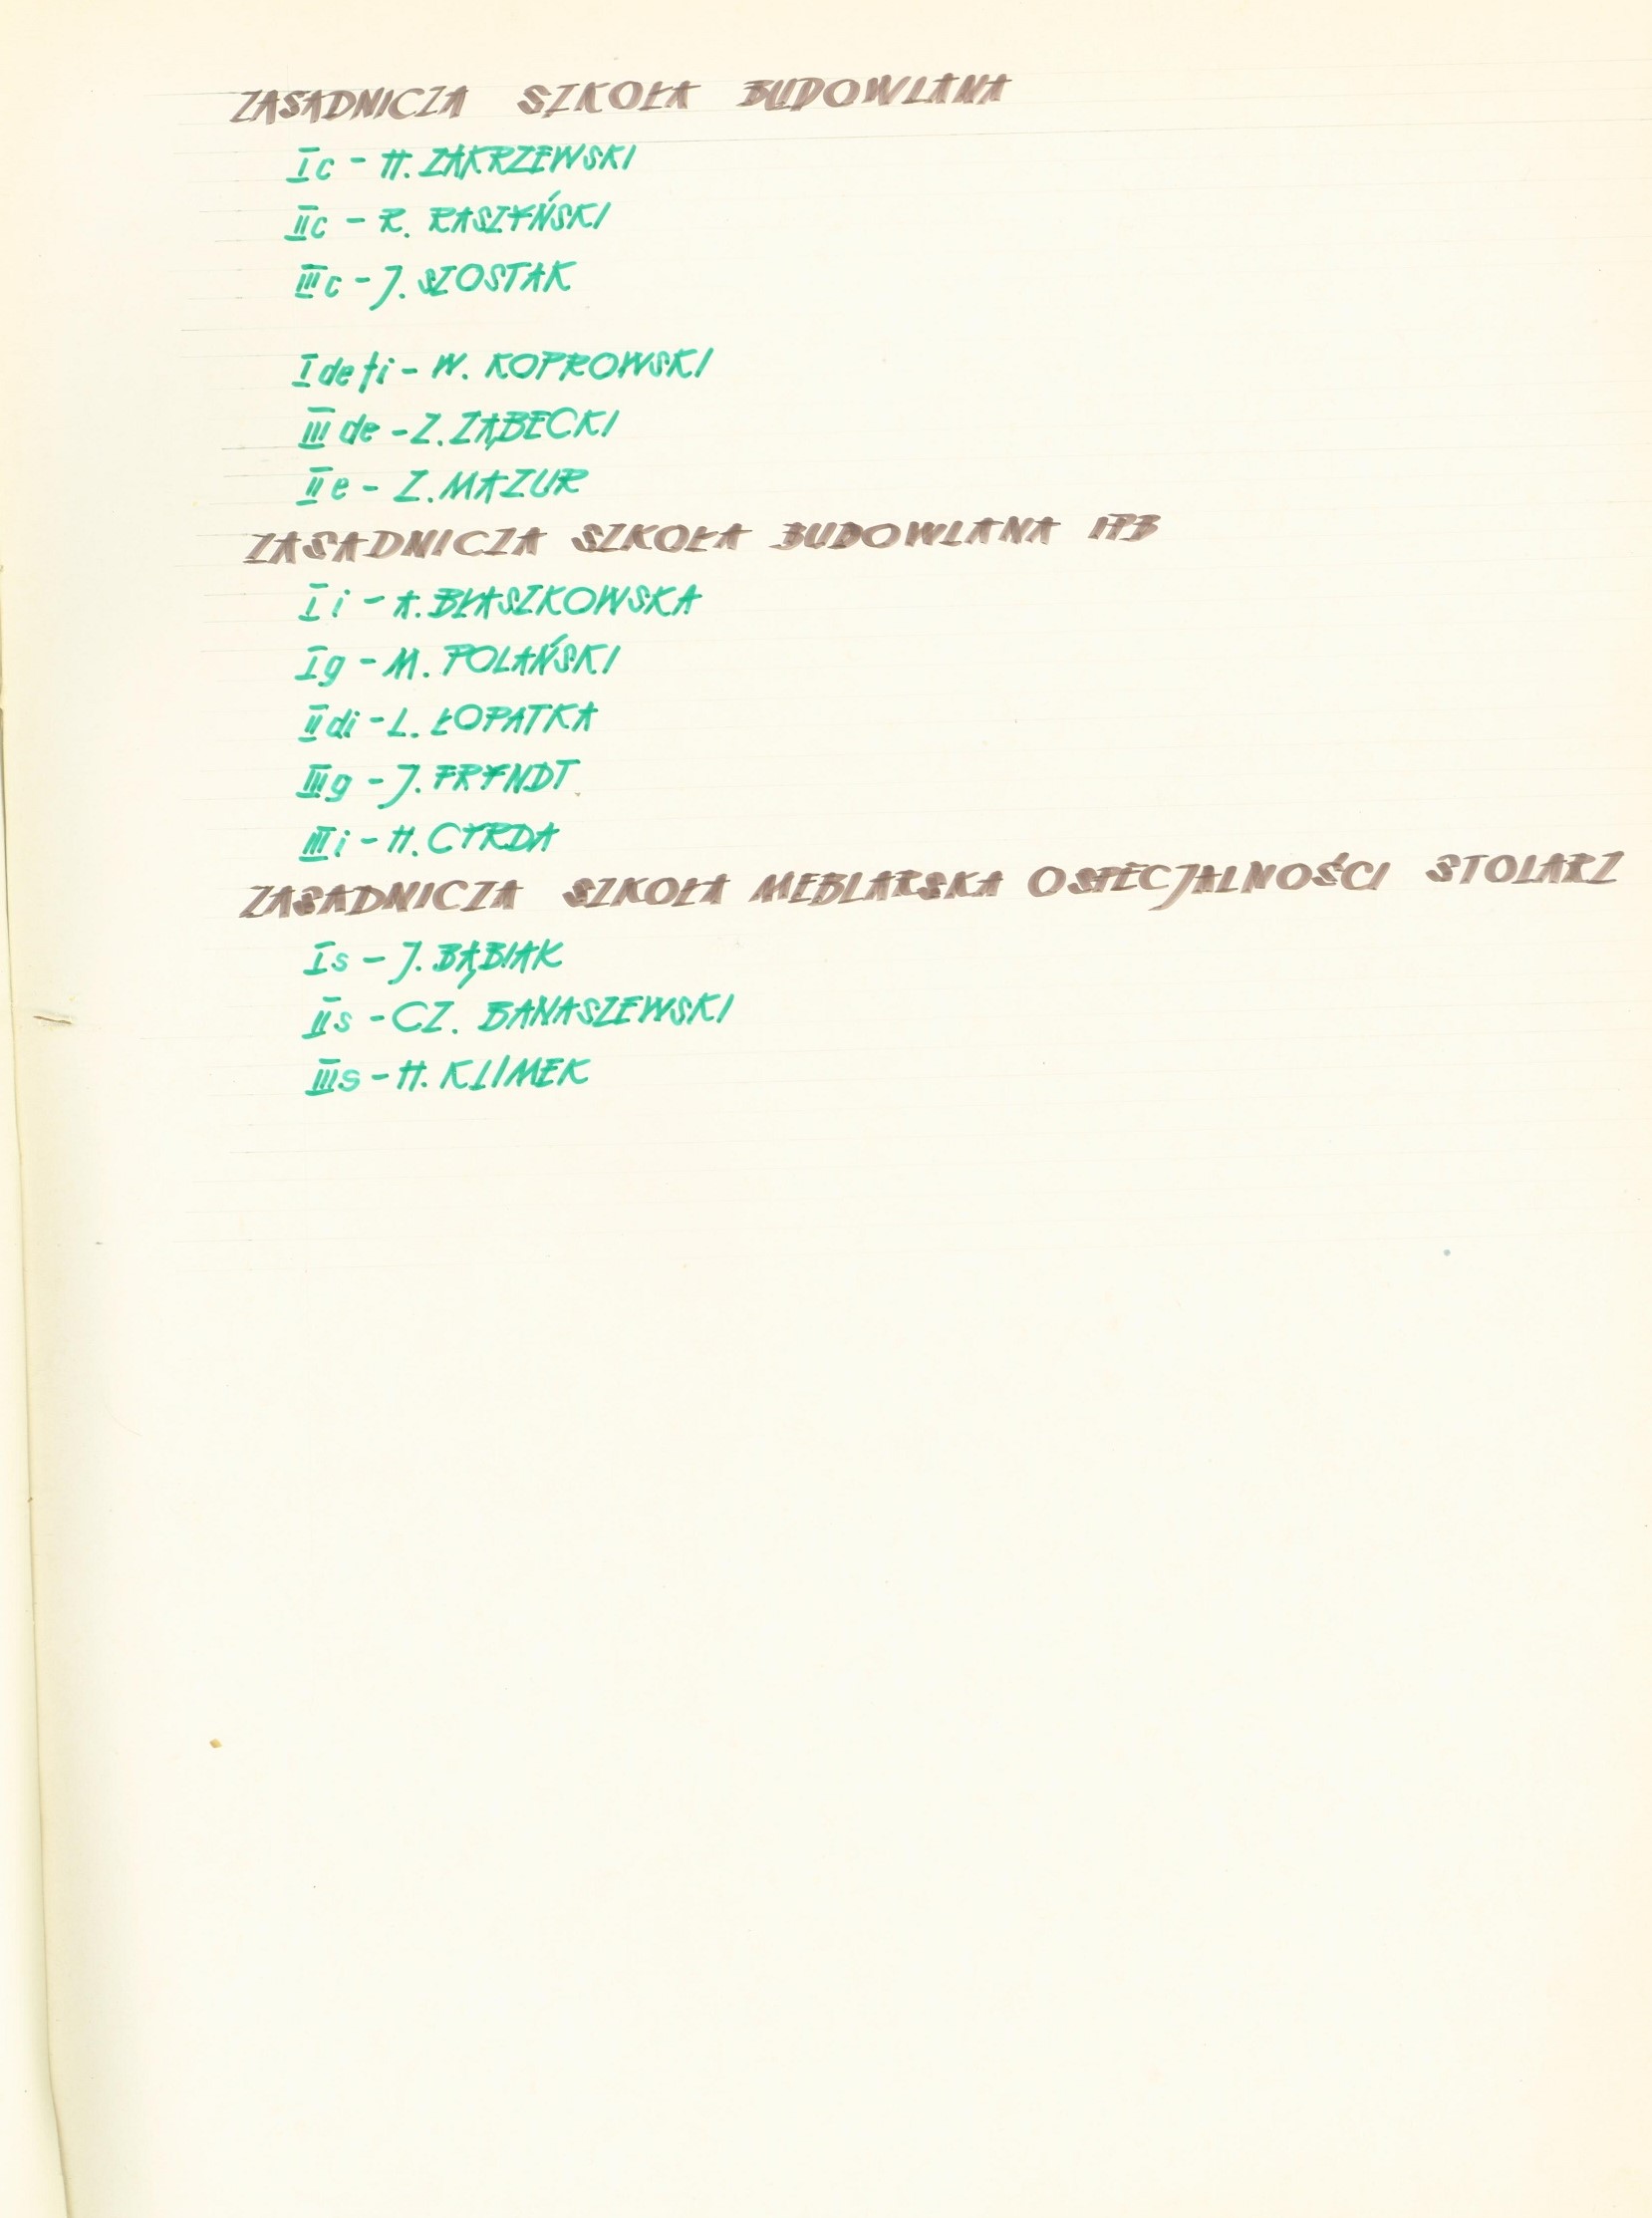 ZASADNICZA SZKOŁA BUDOWLANA
Ic - H. ZAKRZEWSKI
IIc - R. RASZYŃSKI
IIIc - J. SZOSTAK
I de fi - W. KOPROWSKI
III de - Z. ZĄBECKI
II e - Z. MAZUR
ZASADNICZA SZKOŁA BUDOWLANA IPB
I i - A. BŁASZKOWSKA
Ig - M. POLAŃSKI
II di - L. ŁOPATKA
IIIg - J. FRYNDT
III i - H. CYRDA
ZASADNICZA SZKOŁA MEBLARSKA O SPECJALNOŚCI STOLARZ
Is - J. BĄBIAK
IIs - CZ. BANASZEWSKI
IIIs - H. KLIMEK